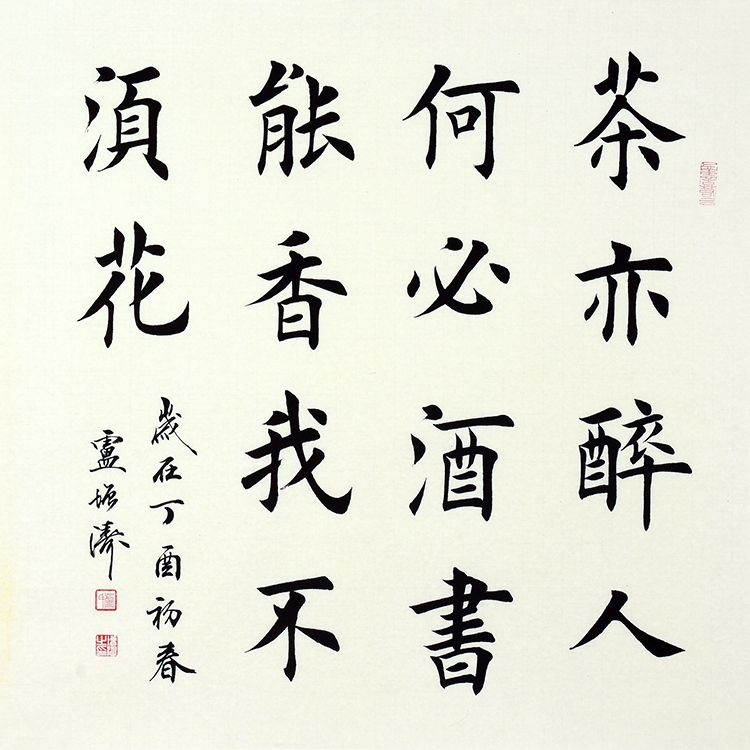 茶亦醉人
何必酒書
能香我不
湏花
歲在丁酉初春
盧